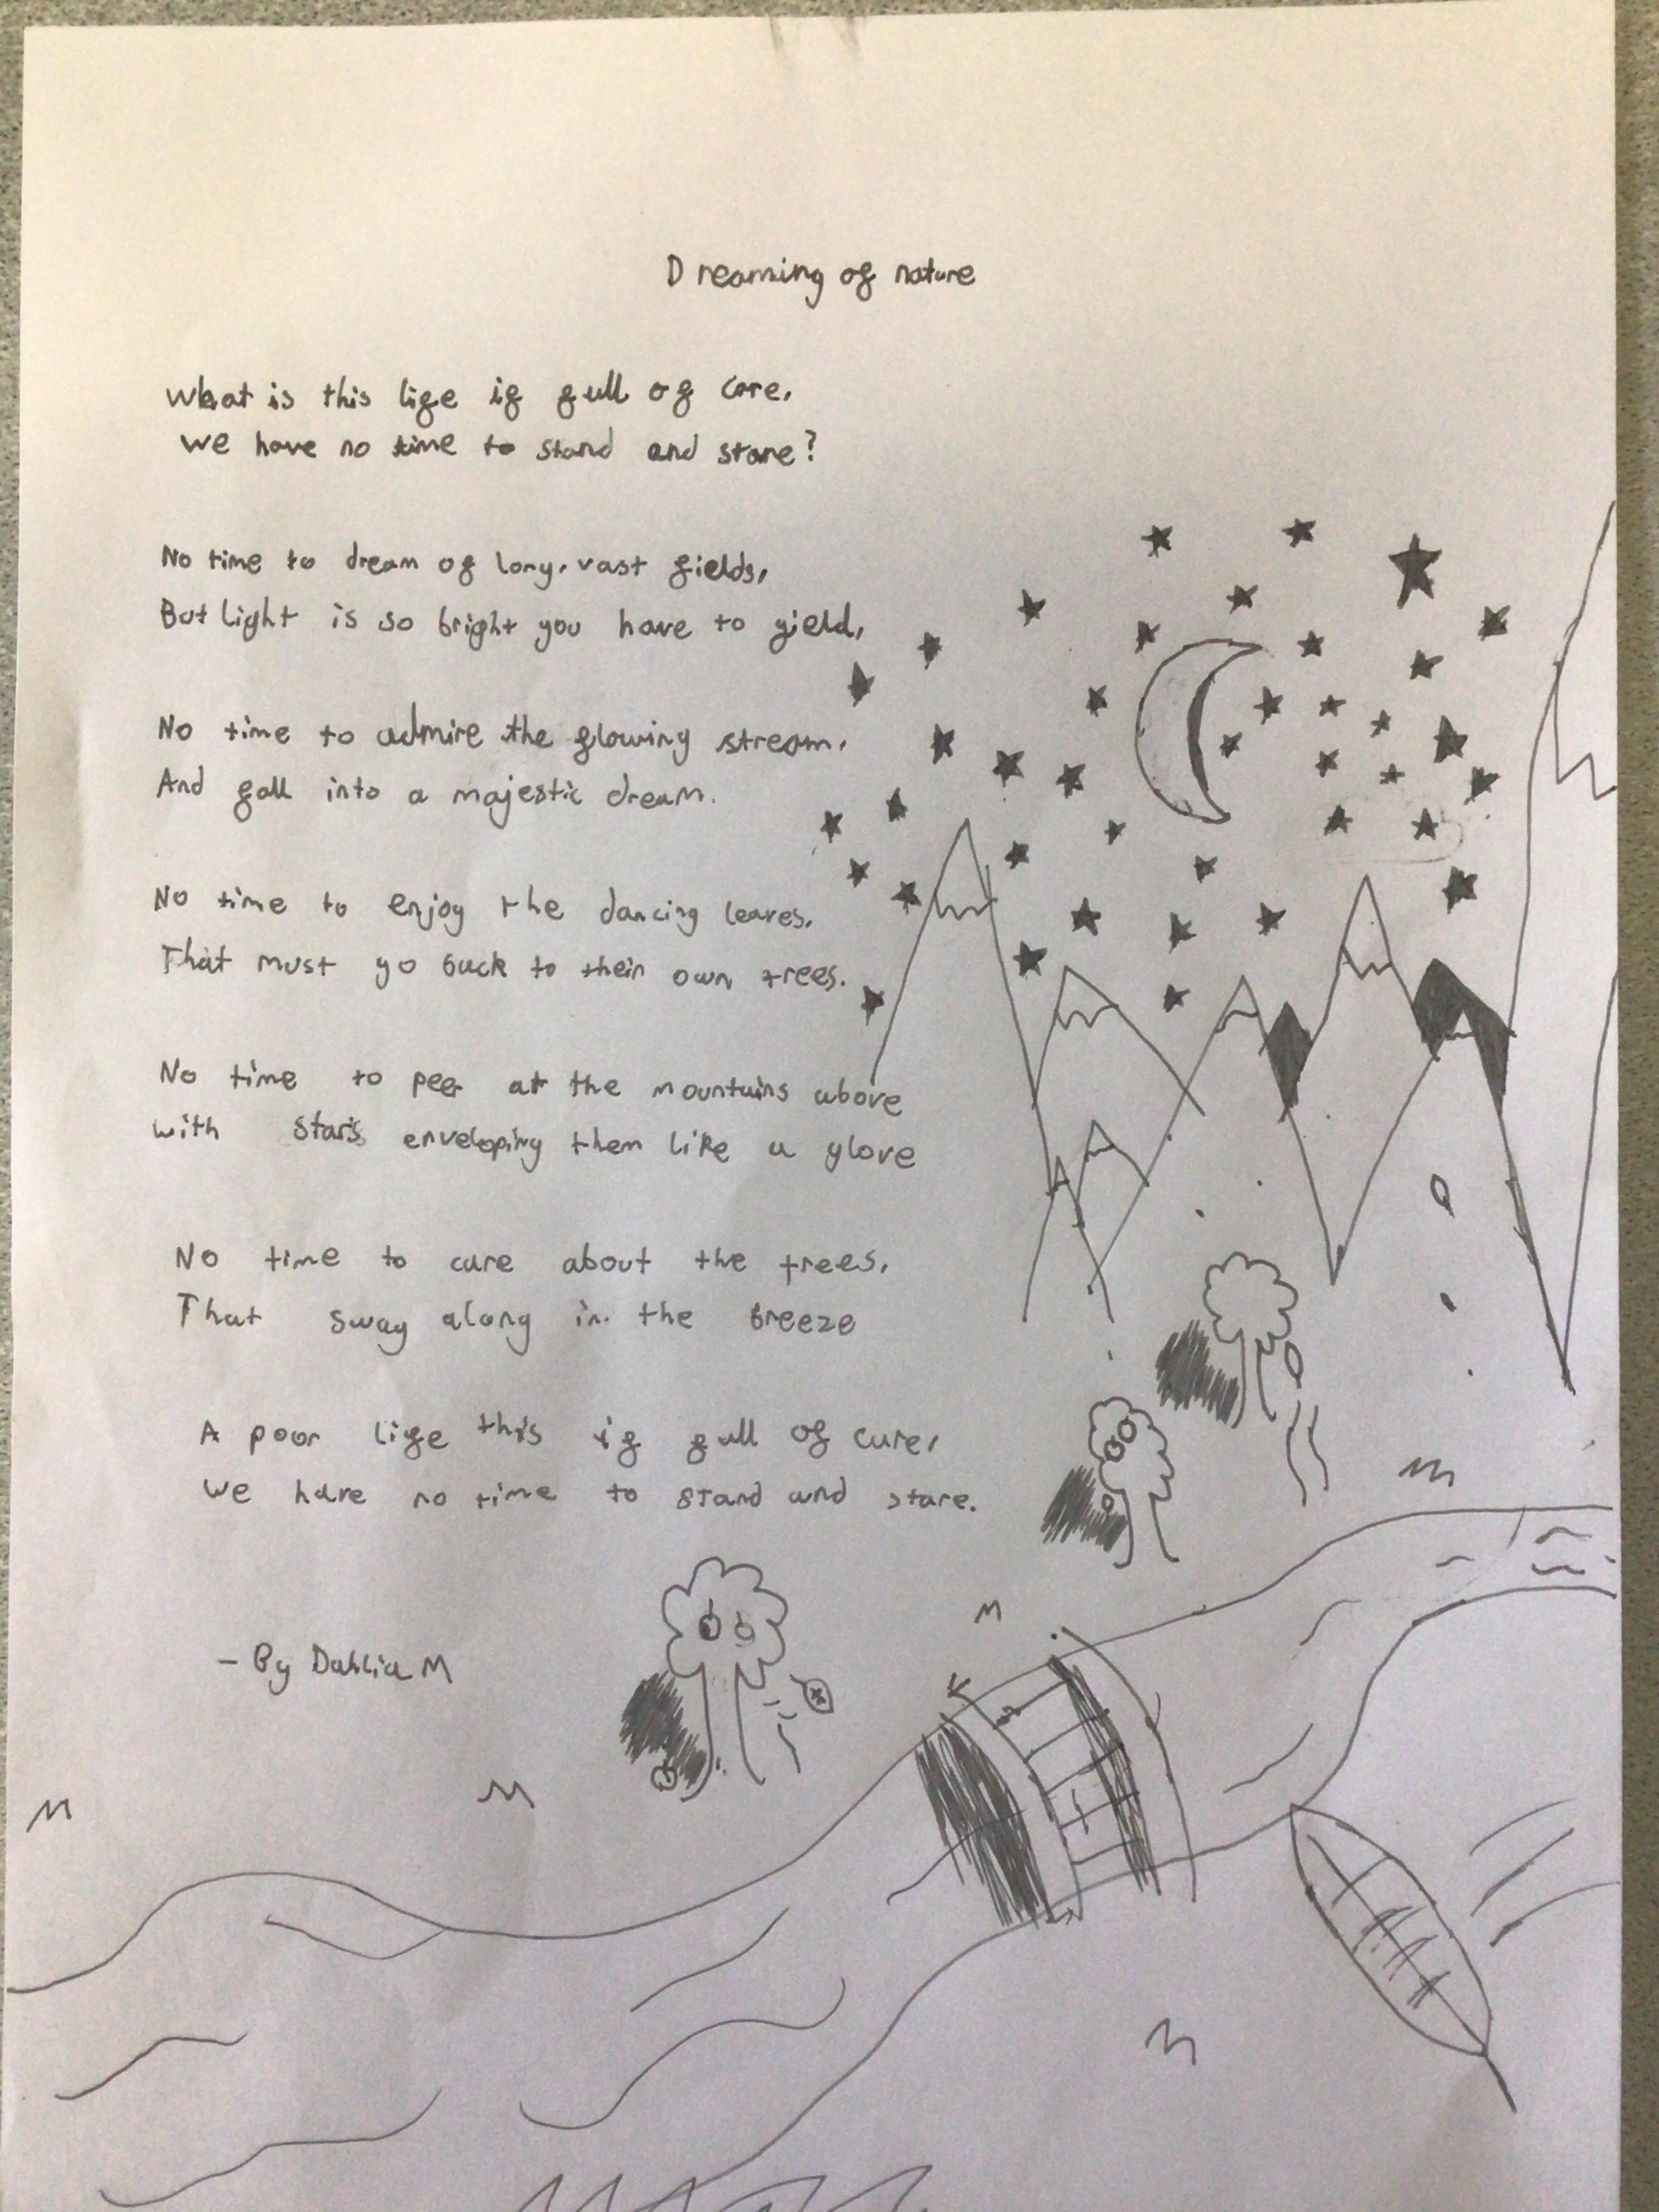 Dreaming of nature
What is this life if full of care,
We have no time to stand and stare?
No time to dream of long, vast fields,
But light is so bright you have to yield,
No time to admire the glowing stream,
And fall into a majestic dream.
No time to enjoy the dancing leaves,
That must go back to their own trees.
No time to peer at the mountains above
with stars enveloping them like a glove
No time to care about the trees,
That sway along in the breeze
A poor life this if full of care,
We have no time to stand and stare.
- By Dahlia M